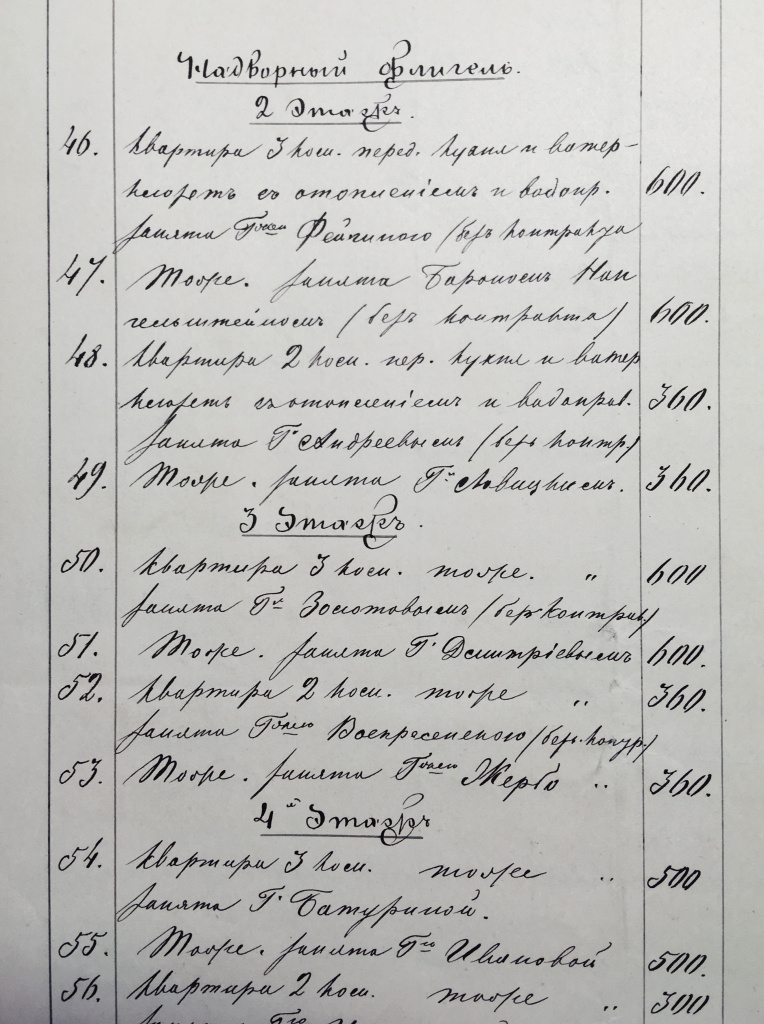 Надворный флигель.
2 Этажъ.
46. Квартира 3 комн. перед. кухня и ватер-
клозетъ съ отопленіемъ и водопр. 600.
занята Г-жею (безъ контракта
47. Тоже. занята Барономъ
(безъ контракта) 600.
48. Квартира 2 комн. пер. кухня и ватер
клозетъ съ отопленіемъ и водопров. 360.
занята Г. Андреевымъ (безъ контр.)
49. Тоже. занята Г. 360.
3 Этажъ.
50. Квартира 3 комн. тоже. „ 600
занята Г. Золотовымъ (безъ контрак.)
51. Тоже. занята Г. Дмитріевымъ 600.
52. Квартира 2 комн. тоже „ 360.
занята Г-жею (безъ контр.)
53. Тоже. занята Г-жею Жербо „ 360.
4й Этажъ
54. Квартира 3 комн. тоже „ 500
занята Г. Батуриной.
55. Тоже. занята Ивановой 500.
56. Квартира 2 комн. тоже „ 300